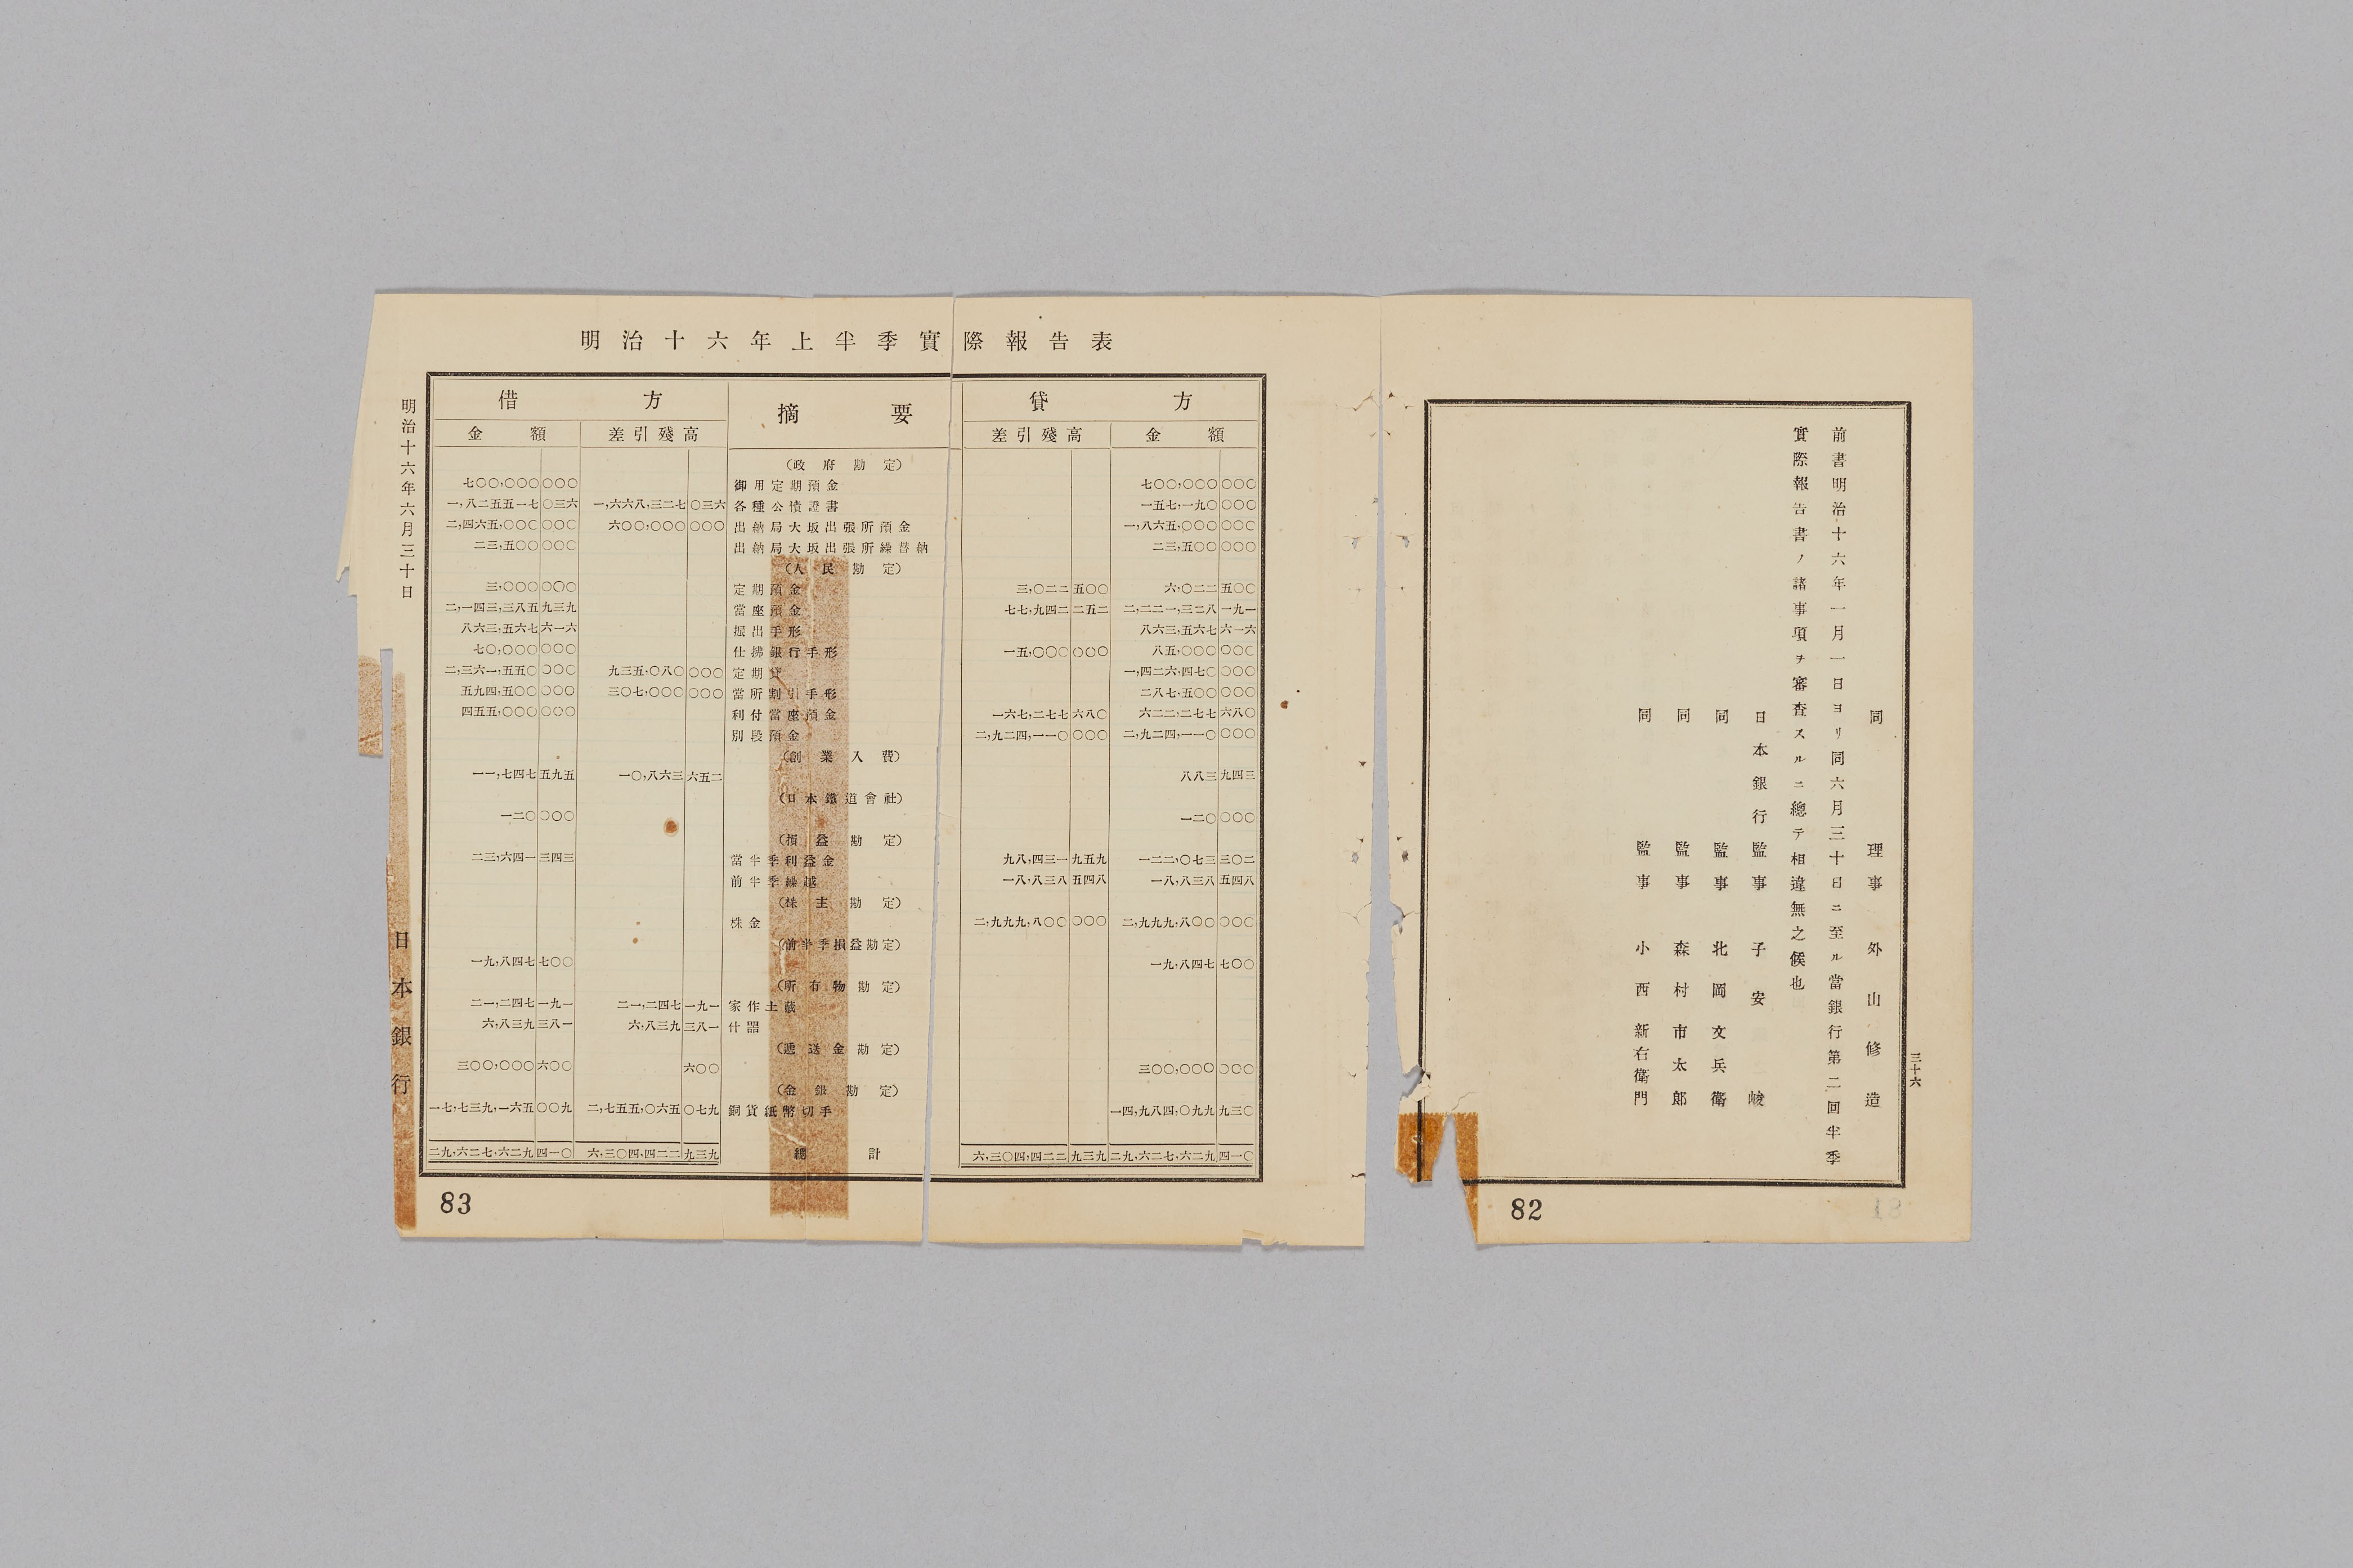 三十六
同 理事 外山修造
前書明治十六年一月一日ヨリ同六月三十日ニ至ル當銀行第二回半季
實際報告書ノ諸事項ヲ審査スルニ總テ相違無之候也
日本銀行監事 子安峻
同 監事 北岡文兵衞
同 監事 森村市太郎
同 監事 小西新右衞門
82
明治十六年上半季實際報告表
借方 摘要 貸方
金額 差引殘高 差引殘高 金額
(政府勘定)
七〇〇,〇〇〇 〇〇〇 御用定期預金 七〇〇,〇〇〇 〇〇〇
一,八二五五一七 〇三六 一,六六八,三二七 〇三六 各種公債證書 一五七,一九〇 〇〇〇
二,四六五,〇〇〇 〇〇〇 六〇〇,〇〇〇 〇〇〇 出納局大坂出張所預金 一,八六五,〇〇〇 〇〇〇
二三,五〇〇 〇〇〇 出納局大坂出張所繰替納 二三,五〇〇 〇〇〇
(人民勘定)
三,〇〇〇 〇〇〇 定期預金 三,〇二二 五〇〇 六,〇二二 五〇〇
二,一四三,三八五 九三九 當座預金 七七,九四二 二五二 二,二二一,三二八 一九一
八六三,五六七 六一六 振出手形 八六三,五六七 六一六
七〇,〇〇〇 〇〇〇 仕拂銀行手形 一五,〇〇〇 〇〇〇 八五,〇〇〇 〇〇〇
二,三六一,五五〇 〇〇〇 九三五,〇八〇 〇〇〇 定期貸 一,四二六,四七〇 〇〇〇
五九四,五〇〇 〇〇〇 三〇七,〇〇〇 〇〇〇 當所割引手形 二八七,五〇〇 〇〇〇
四五五,〇〇〇 〇〇〇 利付當座預金 一六七,二七七 六八〇 六二二,二七七 六八〇
別段預金 二,九二四,一一〇 〇〇〇 二,九二四,一一〇 〇〇〇
(創業入費)
一一,七四七 五九五 一〇,八六三 六五二 八八三 九四三
(日本鐵道會社)
一二〇 〇〇〇 一二〇 〇〇〇
(損益勘定)
二三,六四一 三四三 當半季利益金 九八,四三一 九五九 一二二,〇七三 三〇二
前半季繰越 一八,八三八 五四八 一八,八三八 五四八
(株主勘定)
株金 二,九九九,八〇〇 〇〇〇 二,九九九,八〇〇 〇〇〇
(前半季損益勘定)
一九,八四七 七〇〇 一九,八四七 七〇〇
(所有物勘定)
二一,二四七 一九一 二一,二四七 一九一 家作土藏
六,八三九 三八一 六,八三九 三八一 什器
(遞送金勘定)
三〇〇,〇〇〇 六〇〇 六〇〇 三〇〇,〇〇〇 〇〇〇
(金銀勘定)
一七,七三九,一六五 〇〇九 二,七五五,〇六五 〇七九 銅貨紙幣切手 一四,九八四,〇九九 九三〇
二九,六二七,六二九 四一〇 六,三〇四,四二二 九三九 總計 六,三〇四,四二二 九三九 二九,六二七,六二九 四一〇
明治十六年六月三十日
日本銀行
83